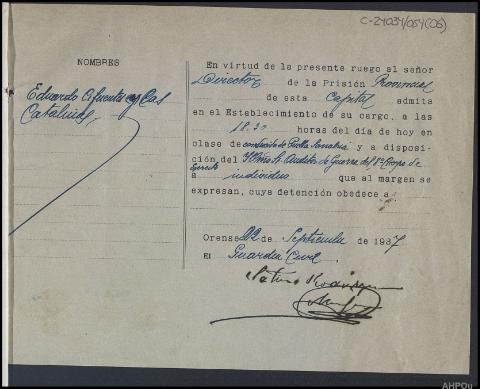 C-24034/054(06)
NOMBRES
Eduardo Cifuentes y Las
Catalinas
En virtud de la presente ruego al señor
Director de la Prisión Provincial
de esta Capital admita
en el Establecimiento de su cargo, a las
18.30 horas del día de hoy en
clase de conducido de Puebla Sanabria y a disposi-
ción del Iltmo Sr. Auditor de Guerra del 8º Cuerpo de
Ejercito
a individuo que al margen se
expresan, cuya detención obedece a
Orense 22 de Septiembre de 1937
El Guardia Civil
AHPOu